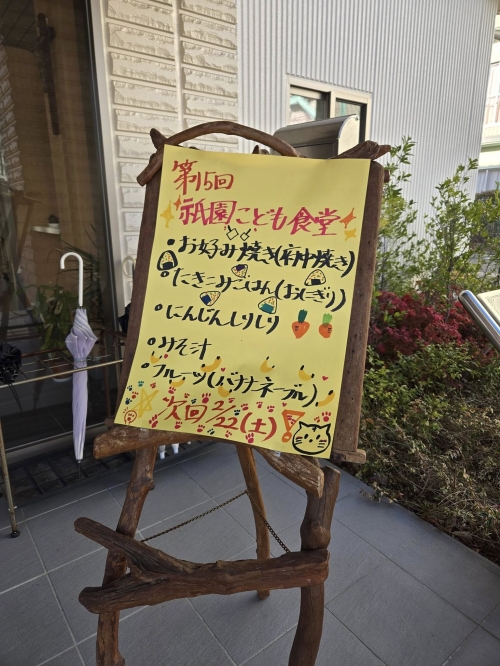 第15回
祇園こども食堂
・お好み焼き(府中焼き)
・たきこみごはん(おにぎり)
・にんじんしりしり
・みそ汁
・フルーツ(バナナ、ネーブル)
次回2/22(土)!